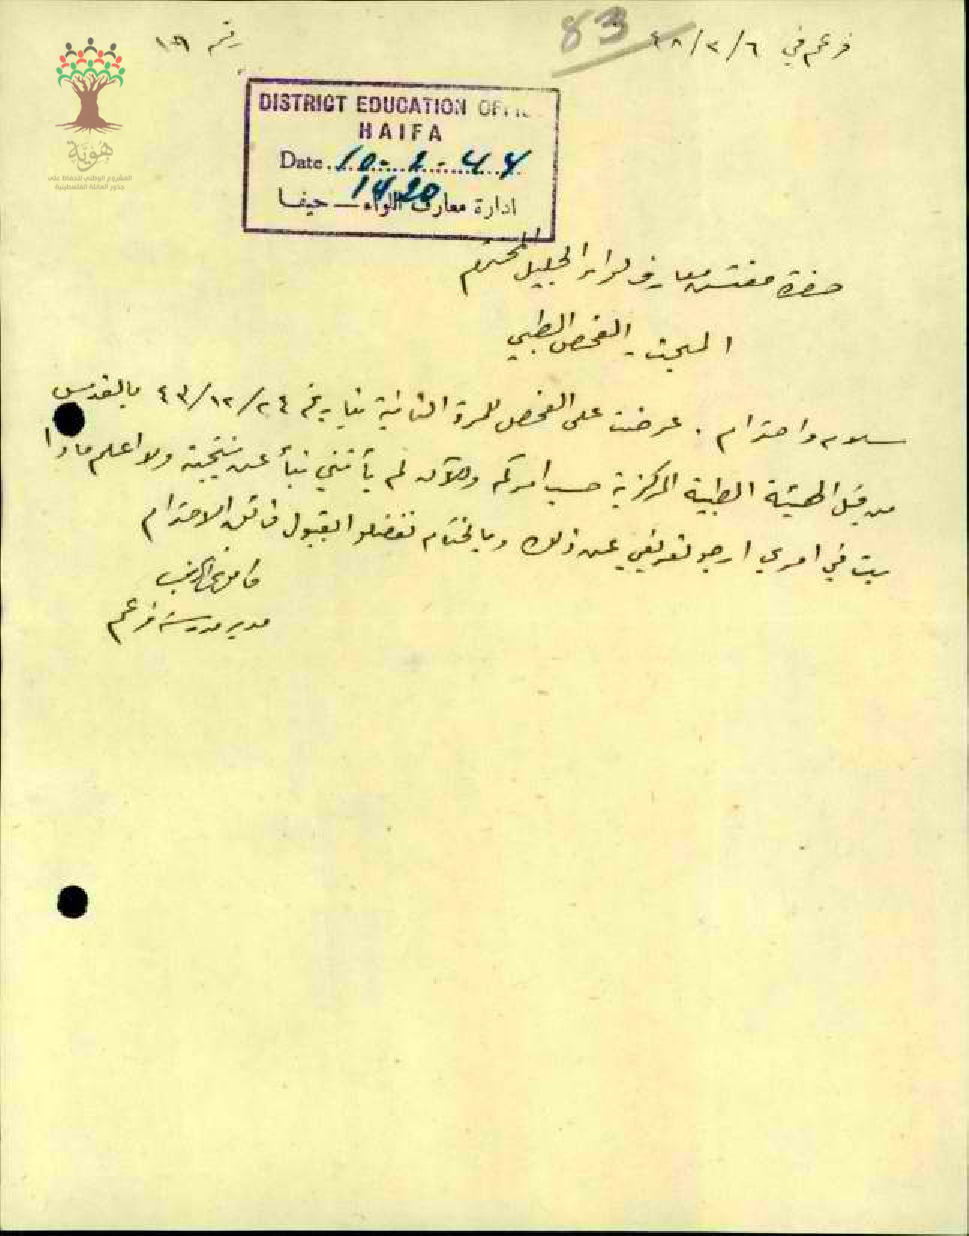 فرعم في ٦/٢/٤٨
83
رقم ١٩
هوية
المشروع الوطني للحفاظ على
جذور العائلة الفلسطينية
DISTRICT EDUCATION OFFI
HAIFA
Date 10-2-44
1420
ادارة معارف اللواء — حيفا
حضرة مفتش معارف لواء الجليل المحترم
المبحث - الفحص الطبي
سلام واحترام . عرضت على الفحص للمرة الثانية بتاريخ ٢٤/١٢/٤٣ بالقدس
من قبل الهيئة الطبية المركزية حسب امركم وللآن لم يأتني نبأ عن نتيجته ولا اعلم ماذا
بت في امري ارجو تعريفي عن ذلك وبالختام تفضلوا بقبول فائق الاحترام
مدير مدرسة فرعم